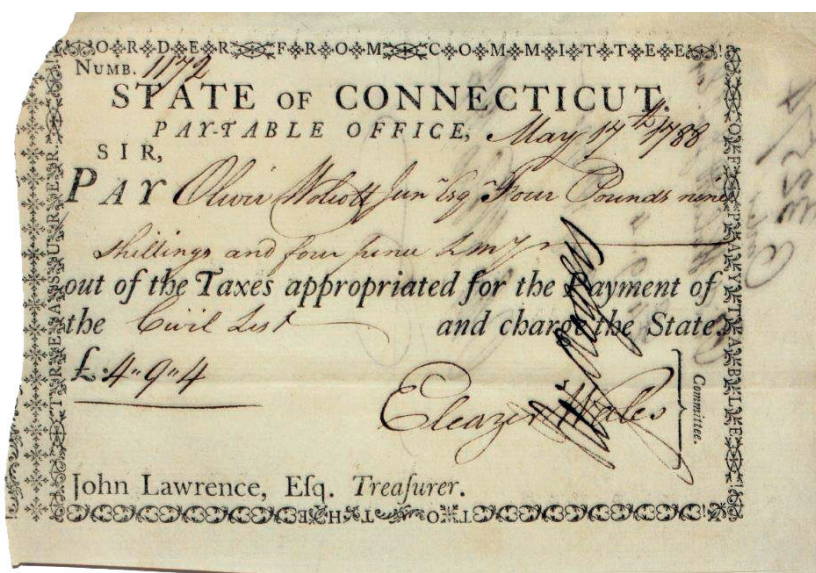 ORDER FROM COMMITTEE
NUMB. 1172
STATE OF CONNECTICUT.
PAY-TABLE OFFICE, May 17th 1788
SIR,
PAY Oliver Wolcott Junr Esq Four Pounds nine
shillings and four pence L my
out of the Taxes appropriated for the Payment of
the Civil List and charge the State.
£. 4"9"4
Eleazer Wales
Committee.
John Lawrence, Eſq. Treaſurer.
OF PAY TABLE
TO THE
TREASURER